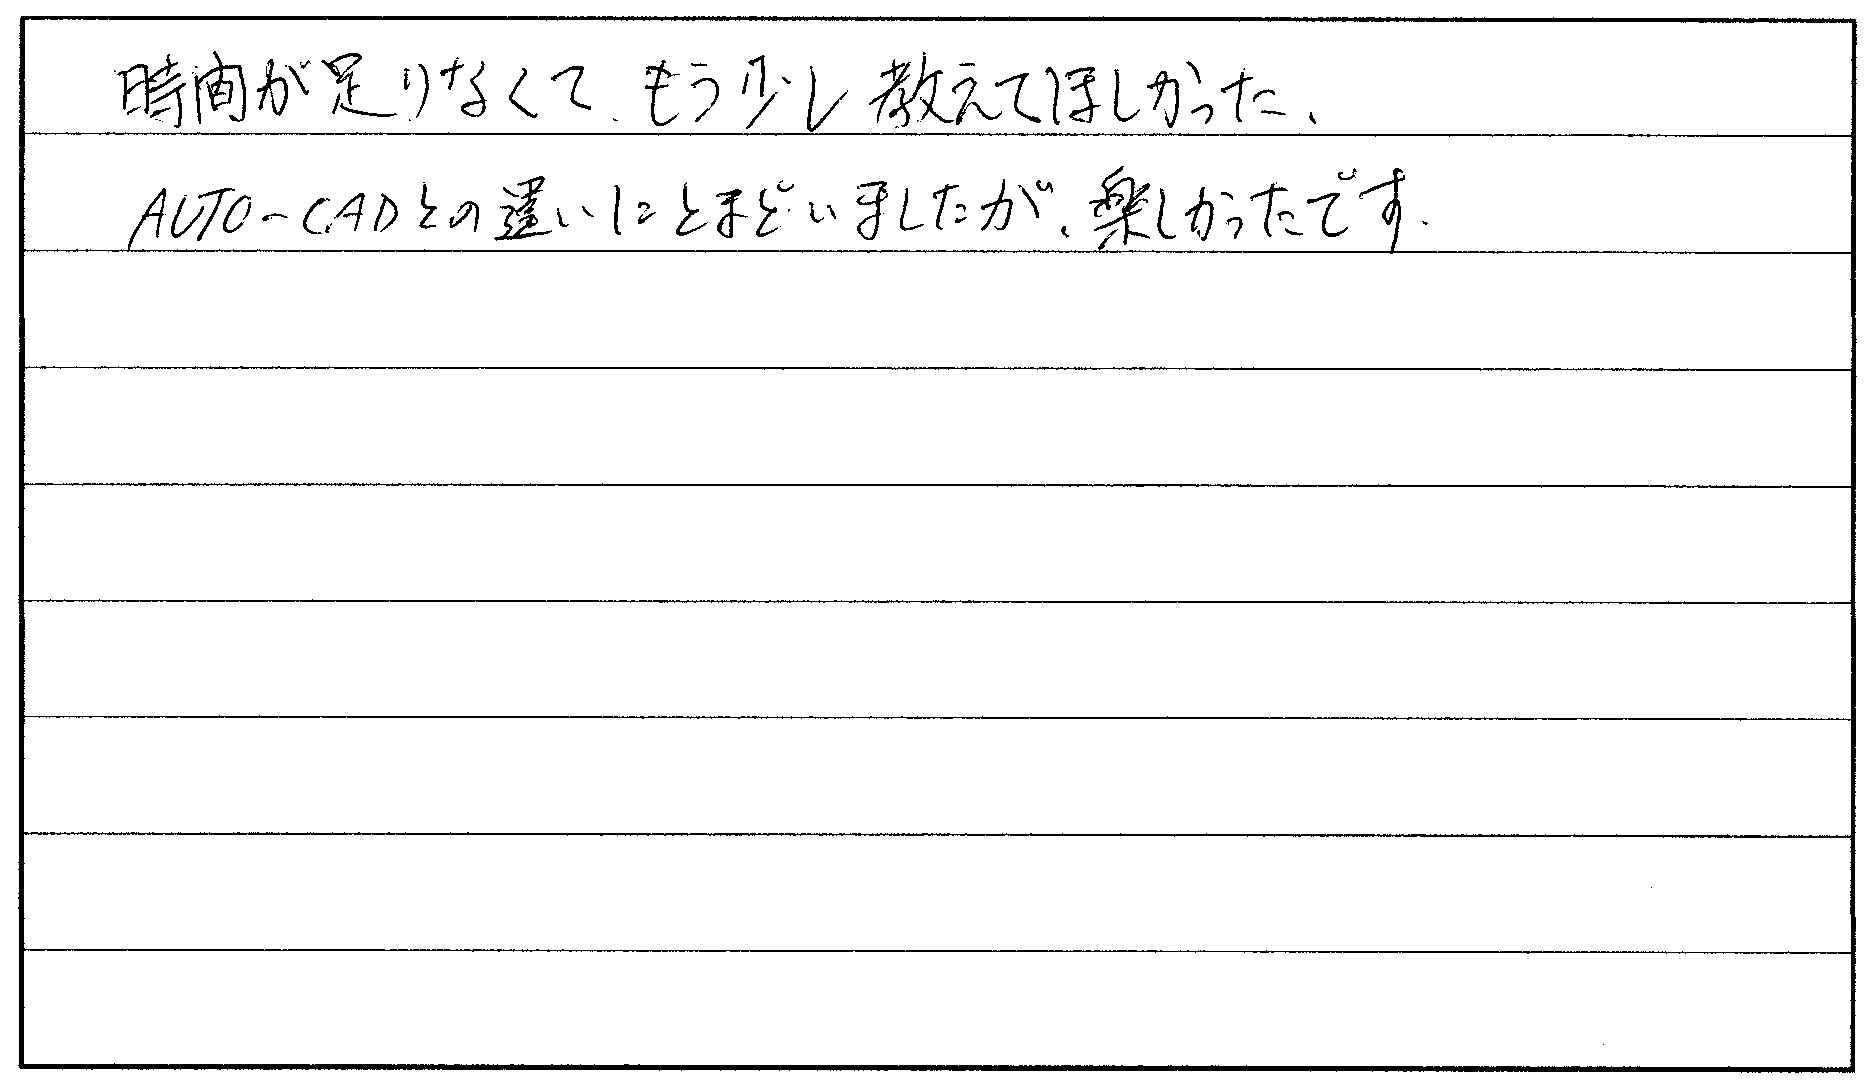 時間が足りなくて、もう少し教えてほしかった、
AUTO-CADとの違いにとまどいましたが、楽しかったです.